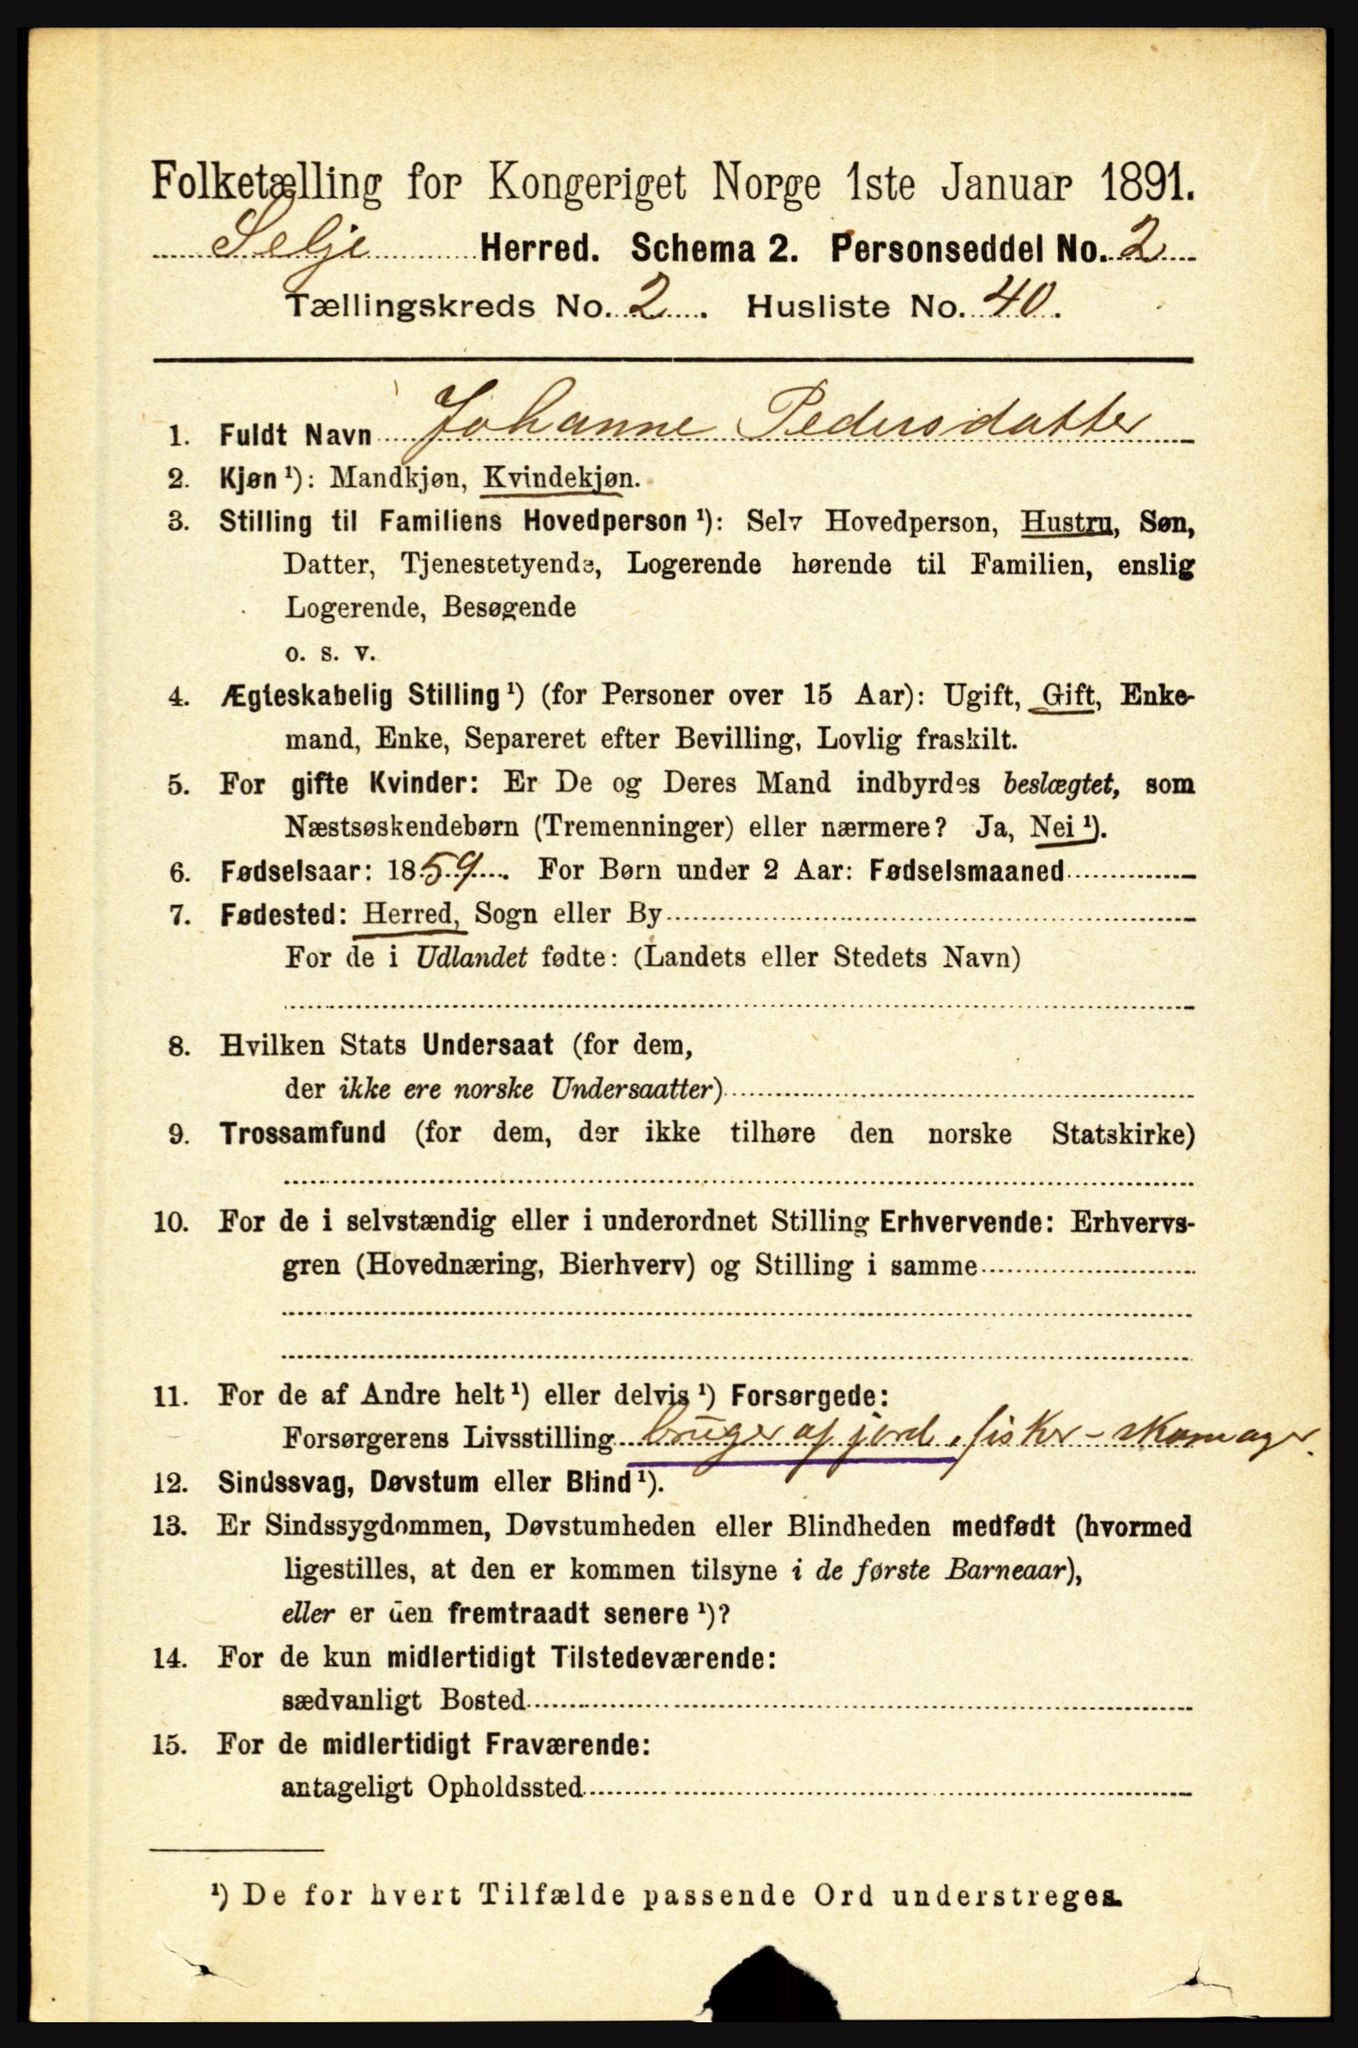 Folketælling for Kongeriget Norge 1ste Januar 1891.
Selje Herred. Schema 2. Personseddel No. 2
Tællingskreds No. 2. Husliste No. 40.
1. Fuldt Navn Johanne Pedersdatter
2. Kjøn ¹): Mandkjøn, Kvindekjøn.
3. Stilling til Familiens Hovedperson ¹): Selv Hovedperson, Hustru, Søn,
Datter, Tjenestetyende, Logerende hørende til Familien, enslig
Logerende, Besøgende
o. s. v.
4. Ægteskabelig Stilling ¹) (for Personer over 15 Aar): Ugift, Gift, Enke-
mand, Enke, Separeret efter Bevilling, Lovlig fraskilt.
5. For gifte Kvinder: Er De og Deres Mand indbyrdes beslægtet, som
Næstsøskendebørn (Tremenninger) eller nærmere? Ja, Nei ¹).
6. Fødselsaar: 1859. For Børn under 2 Aar: Fødselsmaaned
7. Fødested: Herred, Sogn eller By
For de i Udlandet fødte: (Landets eller Stedets Navn)
8. Hvilken Stats Undersaat (for dem,
der ikke ere norske Undersaatter)
9. Trossamfund (for dem, der ikke tilhøre den norske Statskirke)
10. For de i selvstændig eller i underordnet Stilling Erhvervende: Erhvervs-
gren (Hovednæring, Bierhverv) og Stilling i samme
11. For de af Andre helt ¹) eller delvis ¹) Forsørgede:
Forsørgerens Livsstilling bruger af jord, fisker - skomager.
12. Sindssvag, Døvstum eller Blind ¹).
13. Er Sindssygdommen, Døvstumheden eller Blindheden medfødt (hvormed
ligestilles, at den er kommen tilsyne i de første Barneaar),
eller er den fremtraadt senere ¹)?
14. For de kun midlertidigt Tilstedeværende:
sædvanligt Bosted
15. For de midlertidigt Fraværende:
antageligt Opholdssted
¹) De for hvert Tilfælde passende Ord understreges.